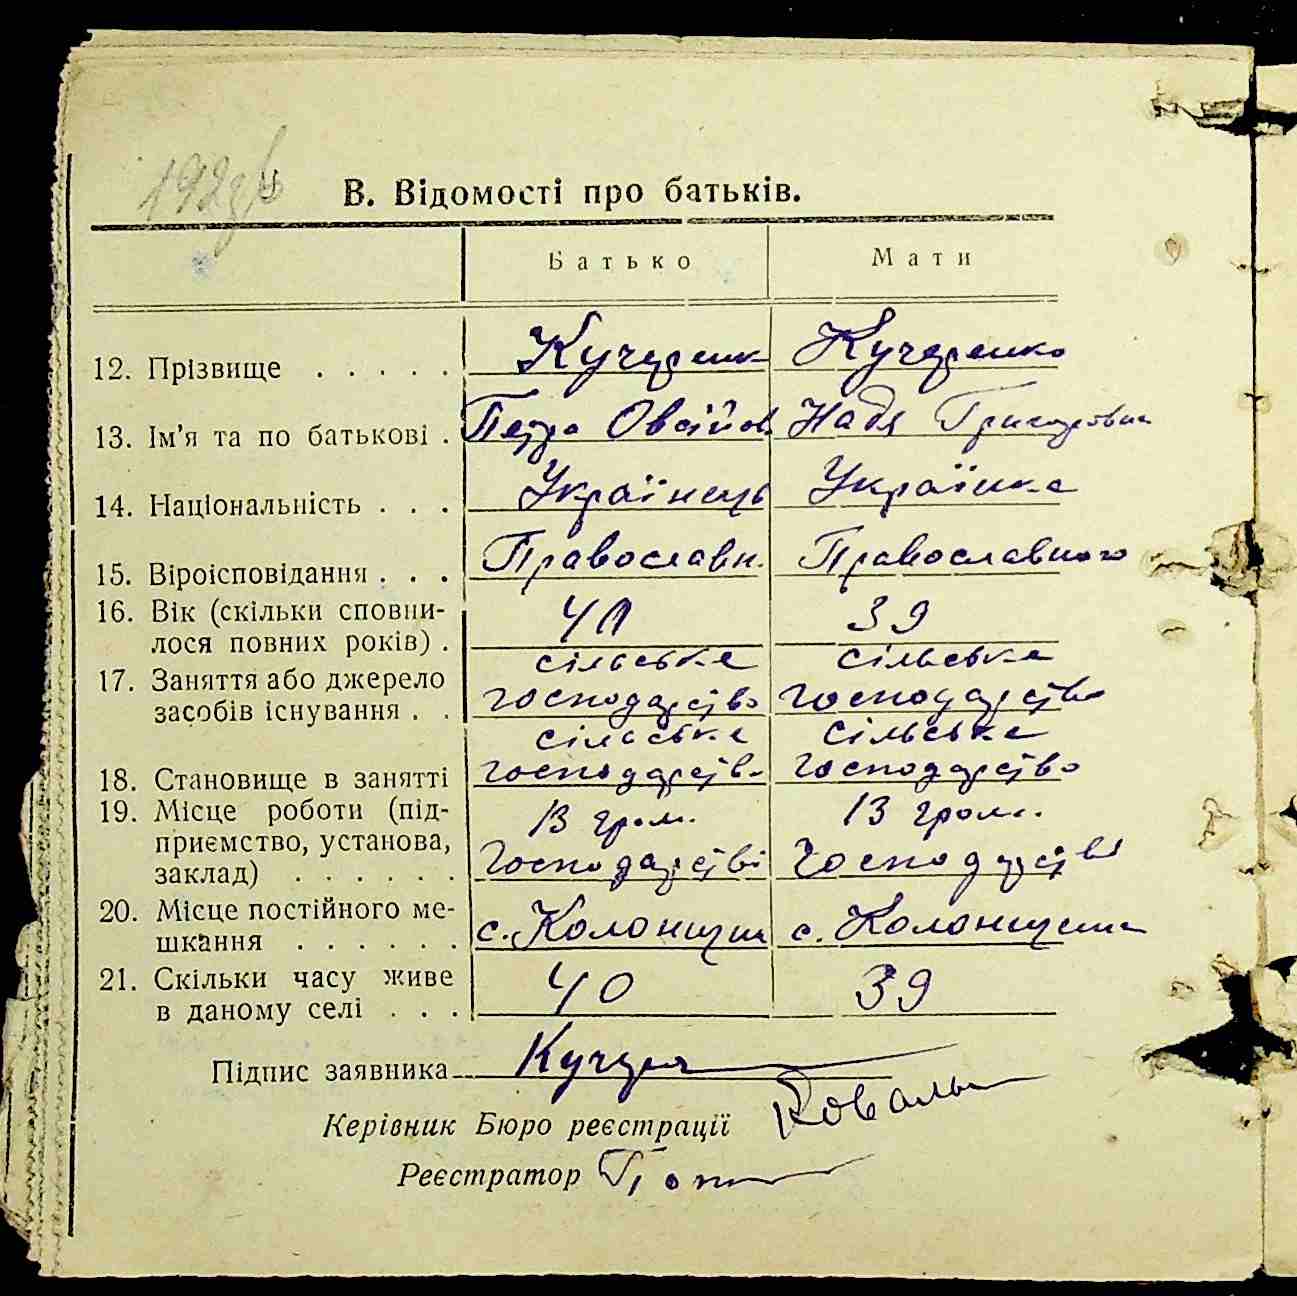 В. Відомості про батьків.
Батько Мати
12. Прізвище . . . . . Кучеренк Кучеренко
13. Ім'я та по батькові . Петро Овсійов. Надя Григоровна
14. Національність . . . Українець Українка
15. Віроісповідання . . . Православн. Православного
16. Вік (скільки сповни-
лося повних років) . 41 39
сільське сільське
17. Заняття або джерело
засобів існування . . господарство господарство
сільське сільське
18. Становище в занятті господарств. господарство
19. Місце роботи (під- В гром. В гром.
приємство, установа,
заклад) . . . . . . господарстві господарстві
20. Місце постійного ме-
шкання . . . . . . с. Колонщин с. Колонщина
21. Скільки часу живе
в даному селі . . . 40 39
Підпис заявника
Керівник Бюро реєстрації Коваль
Реєстратор